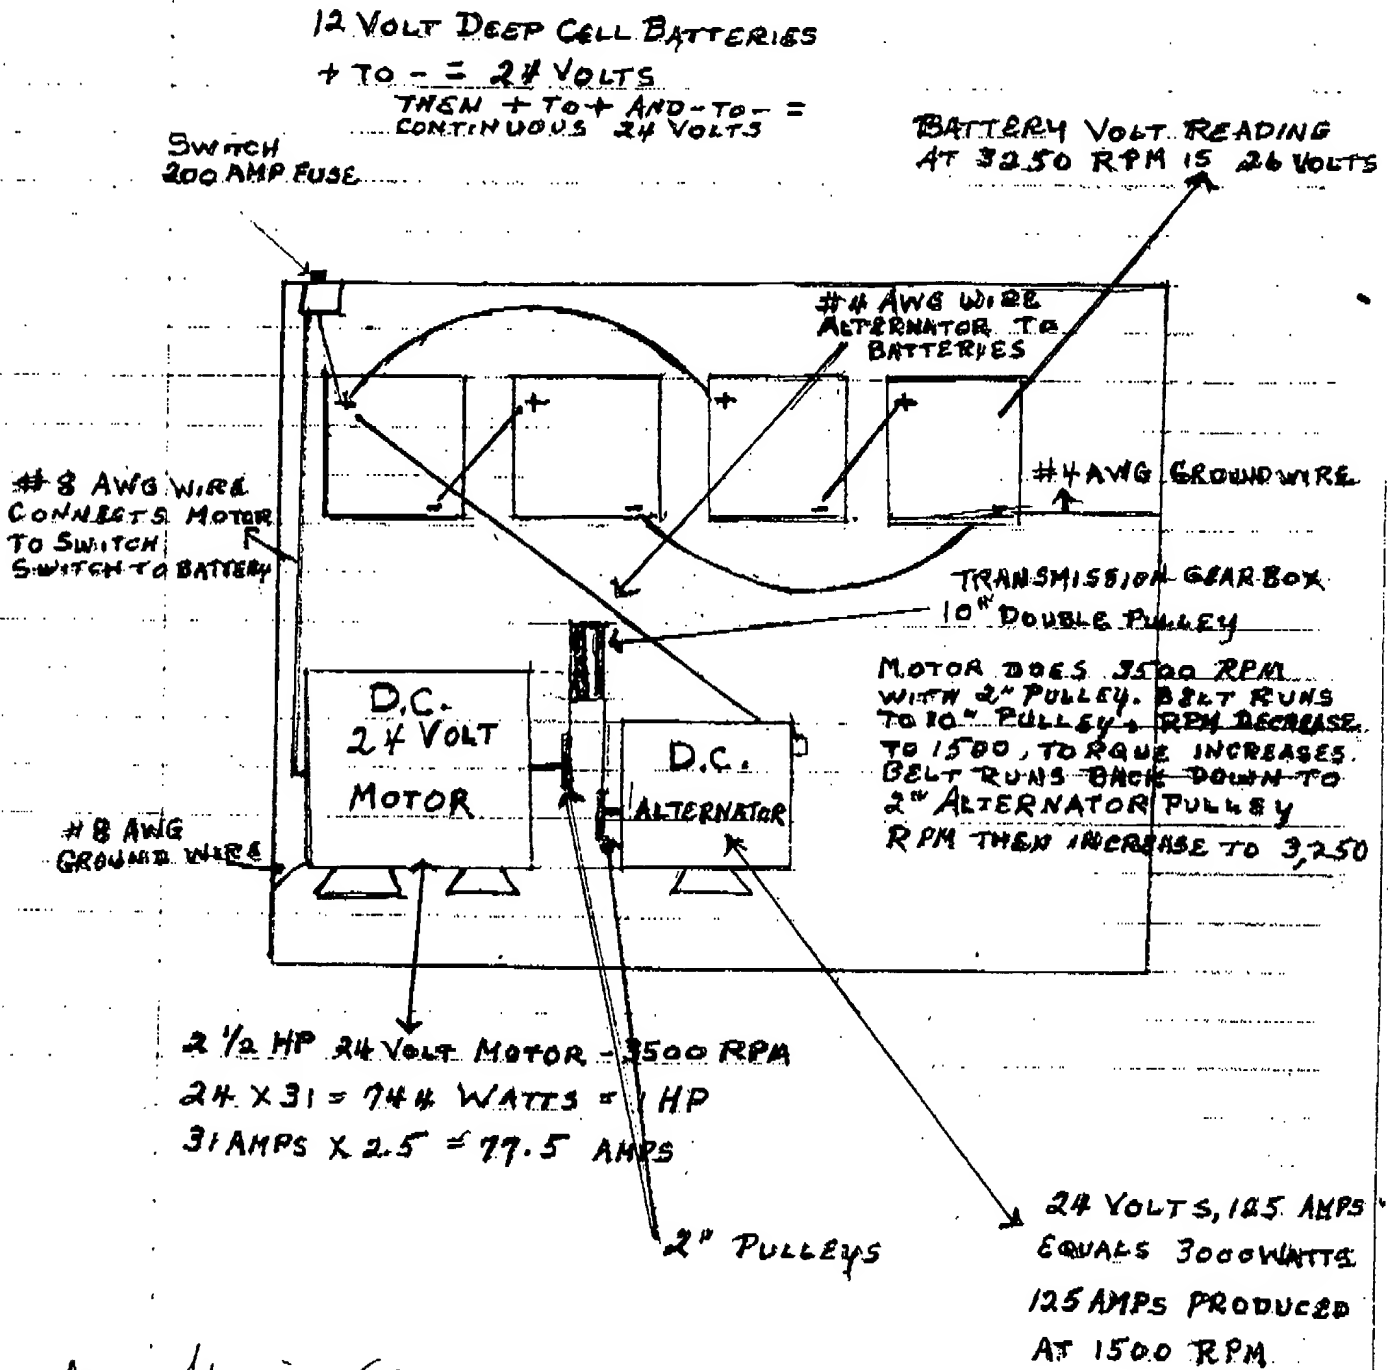 12 VOLT DEEP CELL BATTERIES
+ TO - = 24 VOLTS
THEN + TO + AND - TO - =
CONTINUOUS 24 VOLTS
SWITCH
200 AMP FUSE
BATTERY VOLT READING
AT 3250 RPM IS 26 VOLTS
#4 AWG WIRE
ALTERNATOR TO
BATTERIES
+
+
+
+
-
-
-
-
#8 AWG WIRE
CONNECTS MOTOR
TO SWITCH
SWITCH TO BATTERY
#4 AWG GROUND WIRE
TRANSMISSION GEAR BOX
10" DOUBLE PULLEY
MOTOR DOES 3500 RPM
WITH 2" PULLEY. BELT RUNS
TO 10" PULLEY, RPM DECREASE
TO 1500, TORQUE INCREASES.
BELT RUNS BACK DOWN TO
2" ALTERNATOR PULLEY
RPM THEN INCREASE TO 3,250
D.C.
24 VOLT
MOTOR
D.C.
ALTERNATOR
#8 AWG
GROUND WIRE
2 1/2 HP 24 VOLT MOTOR - 3500 RPM
24 X 31 = 744 WATTS = 1 HP
31 AMPS X 2.5 = 77.5 AMPS
2" PULLEYS
24 VOLTS, 125 AMPS
EQUALS 3000 WATTS
125 AMPS PRODUCED
AT 1500 RPM